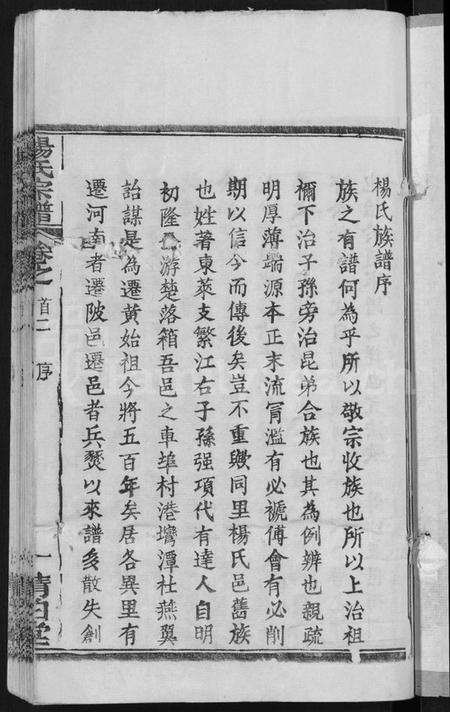 楊氏族譜序
族之有譜何為乎所以敬宗收族也所以上治祖
禰下治子孫旁治昆弟合族也其為例辨也親疏
明厚薄端源本正末流冐濫有必褫傅會有必削
期以信今而傳後矣豈不重歟同里楊氏邑舊族
也姓著東萊支繁江右子孫强項代有達人自明
初隆公游楚落箱吾邑之車埠村港壪潭杜燕翼
詒謀是為遷黄始祖今將五百年矣居各異里有
遷河南者遷陂邑遷邑者兵燹以來譜多散失創
楊氏宗譜 卷之首二 序 一 清白堂